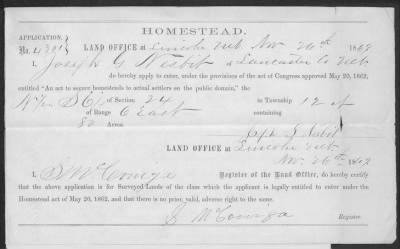 HOMESTEAD.
APPLICATION,
No. LAND OFFICE at Lincoln Neb Nov 26th 1869
I, Joseph G Nesbit of Lancaster Co Neb
do hereby apply to enter, under the provisions of the act of Congress approved May 20, 1862,
entitled "An act to secure homesteads to actual settlers on the public domain," the
W/2 S E/4 of Section 24 in Township 12 of
of Range 6 East containing
80 Acres
Joseph G Nesbit
LAND OFFICE at Lincoln Neb
Nov. 26th 1869
I, S McConiga Register of the Land Office, do hereby certify
that the above application is for Surveyed Lands of the class which the applicant is legally entitled to enter under the
Homestead act of May 20, 1862, and that there is no prior, valid, adverse right to the same.
S McConiga
Register.